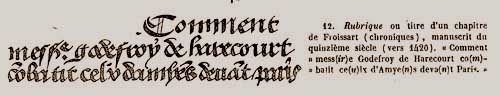 Comment
messr godefroy de harecourt
cōbatit celv damyens devāt paris
12. Rubrique ou titre d'un chapitre
de Froissart (chroniques), manuscrit du
quinzième siècle (vers 1420). « Comment
» mess(ir)e Godefroy de Harecourt co(m)-
» batit ce(u)lx d'Amye(n)s deva(n)t Paris. »